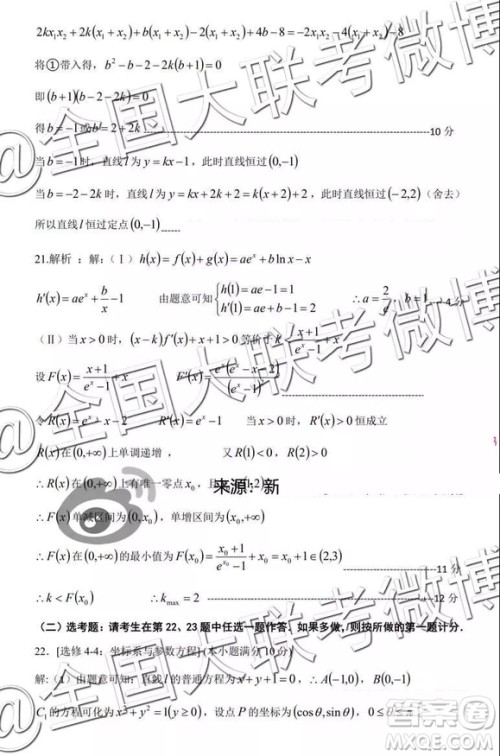 2kx₁x₂+2k(x₁+x₂)+b(x₁+x₂)-2(x₁+x₂)+4b-8=-2x₁x₂-4(x₁+x₂)-8
将①带入得，b²-b-2-2k(b+1)=0
即(b+1)(b-2-2k)=0
得b=-1或b=2+2k ---10分
当b=-1时，直线l为y=kx-1，此时直线恒过(0,-1)
当b=-2-2k时，直线l为y=kx+2k+2=k(x+2)+2，此时直线恒过(-2,2)（舍去）
所以直线l恒过定点(0,-1)
21.解析：解：（Ⅰ）h(x)=f(x)+g(x)=aeˣ+b ln x-x
h′(x)=aeˣ+b/x-1 由题意可知{h(1)=ae-1=1 h′(1)=ae+b-1=2 ∴a=2/e，b=1---4分
（Ⅱ）当x>0时，(x-k)f′(x)+x+1>0等价于k<(x+1)/(eˣ-1)+x
设F(x)=(x+1)/(eˣ-1)+x F′(x)=eˣ(eˣ-x-2)/(eˣ-1)²
令R(x)=eˣ-x-2 R′(x)=eˣ-1 当x>0时，R′(x)>0恒成立
R(x)在(0,+∞)上单调递增， 又R(1)<0，R(2)>0
∴R(x)在(0,+∞)上有唯一零点x₀，且x₀∈(1,2)
来源：新
∴F(x)单减区间为(0,x₀)，单增区间为(x₀,+∞)
∴F(x)在(0,+∞)的最小值为F(x₀)=(x₀+1)/(e^x₀-1)+x₀=x₀+1∈(2,3) ---11分
∴k<F(x₀) ∴k_max=2 ---12分
（二）选考题：请考生在第22、23题中任选一题作答．如果多做，则按所做的第一题计分．
22．[选修4-4：坐标系与参数方程]（本小题满分10分）
解：（1）由题意可知：直线l的普通方程为x+y+1=0，∴A(-1,0)，B(0,-1)
C₁的方程可化为x²+y²=1(y≥0)，设点P的坐标为(cosθ,sinθ)，0≤θ≤π
@全国大联考微博
@全国大联考微博
答案圈
MXQE.COM